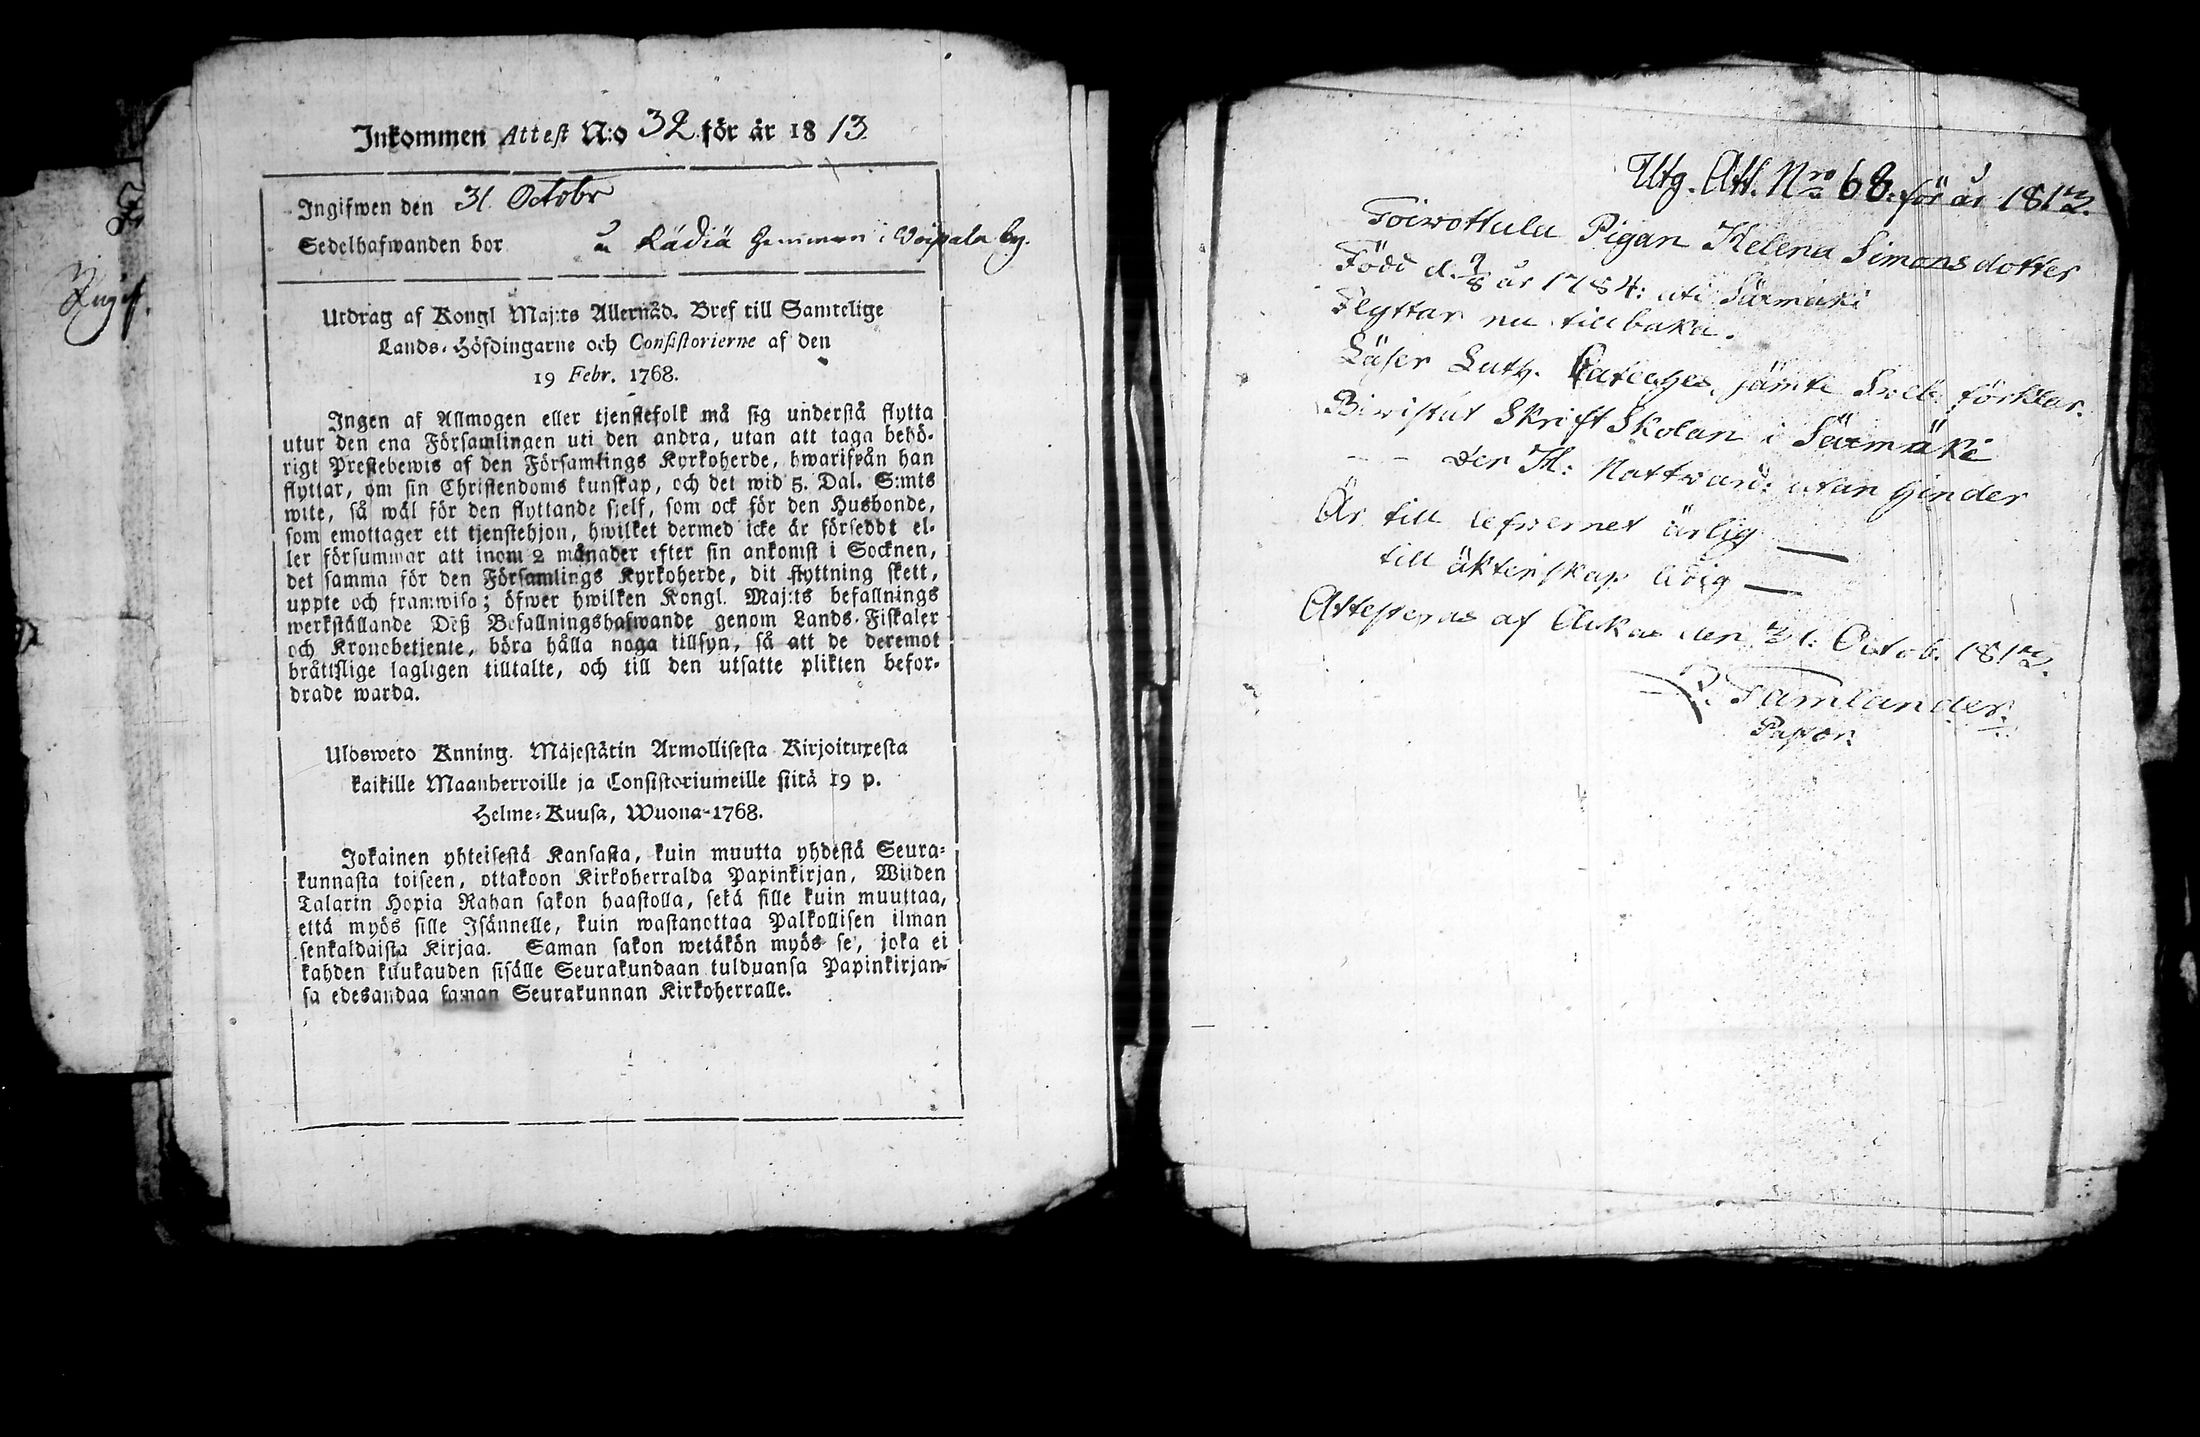 Inkommen Attest N:o 32 för år 1813
Ingifwen den 31 Octobr
Sedelhafwanden bor å Rädiä hemman i Woipala by.
Utdrag af Kongl Maj:ts Allernåd. Bref till Samtelige
Lands-Höfdingarne och Consistorierne af den
19 Febr. 1768.
Ingen af Allmogen eller tjenstefolk må sig understå flytta
utur den ena Församlingen uti den andra, utan att taga behö-
rigt Prestebewis af den Församlings Kyrkoherde, hwarifrån han
flyttar, om sin Christendoms kunskap, och det wid 5. Dal. S:mts
wite, så wäl för den flyttande sjelf, som ock för den Husbonde,
som emottager ett tjenstehjon, hwilket dermed icke är försedt el-
ler försummar att inom 2 månader efter sin ankomst i Socknen,
det samma för den Församlings Kyrkoherde, dit flyttning skett,
uppte och framwisa; öfwer hwilken Kongl. Maj:ts befallnings
werkställande Deß Befallningshafwande genom Lands-Fiskaler
och Kronobetjente, böra hålla noga tillsyn, så att de deremot
bråttslige lagligen tilltalte, och till den utsatte plikten befor-
drade warda.
Ulosweto Kuning. Majestätin Armollisesta Kirjoituxesta
kaikille Maanherroille ja Consistoriumeille siitä 19 p.
Helme-Kuusa, Wuona 1768.
Jokainen yhteisestä Kansasta, kuin muutta yhdestä Seura-
kunnasta toiseen, ottakoon Kirkoherralda Papinkirjan, Wiiden
Talarin Hopia Rahan sakon haastolla, sekä sille kuin muuttaa,
että myös sille Isännelle, kuin wastanottaa Palkollisen ilman
senkaldaista Kirjaa. Saman sakon wetäkön myös se, joka ei
kahden kuukauden sisälle Seurakundaan tulduansa Papinkirjan-
sa edesandaa saman Seurakunnan Kirkoherralle.
Utg. Att. Nro 68. för år 1813.
Pigan Helena Simonsdotter
Född d. 9/8 år 1784: uti Säxmäki
Flyttar nu tillbaka.
Läser Luth. Cateches jämte Sveb. förklar.
Biwistat Skriftskolan i Säxmäki
- - der H: Nattvard: utan hinder
Är till lefwernet ärlig —
till äktenskap ledig —
Attesteras af Akas den 31. Octob. 1813.
Tamlander.
Pastor.